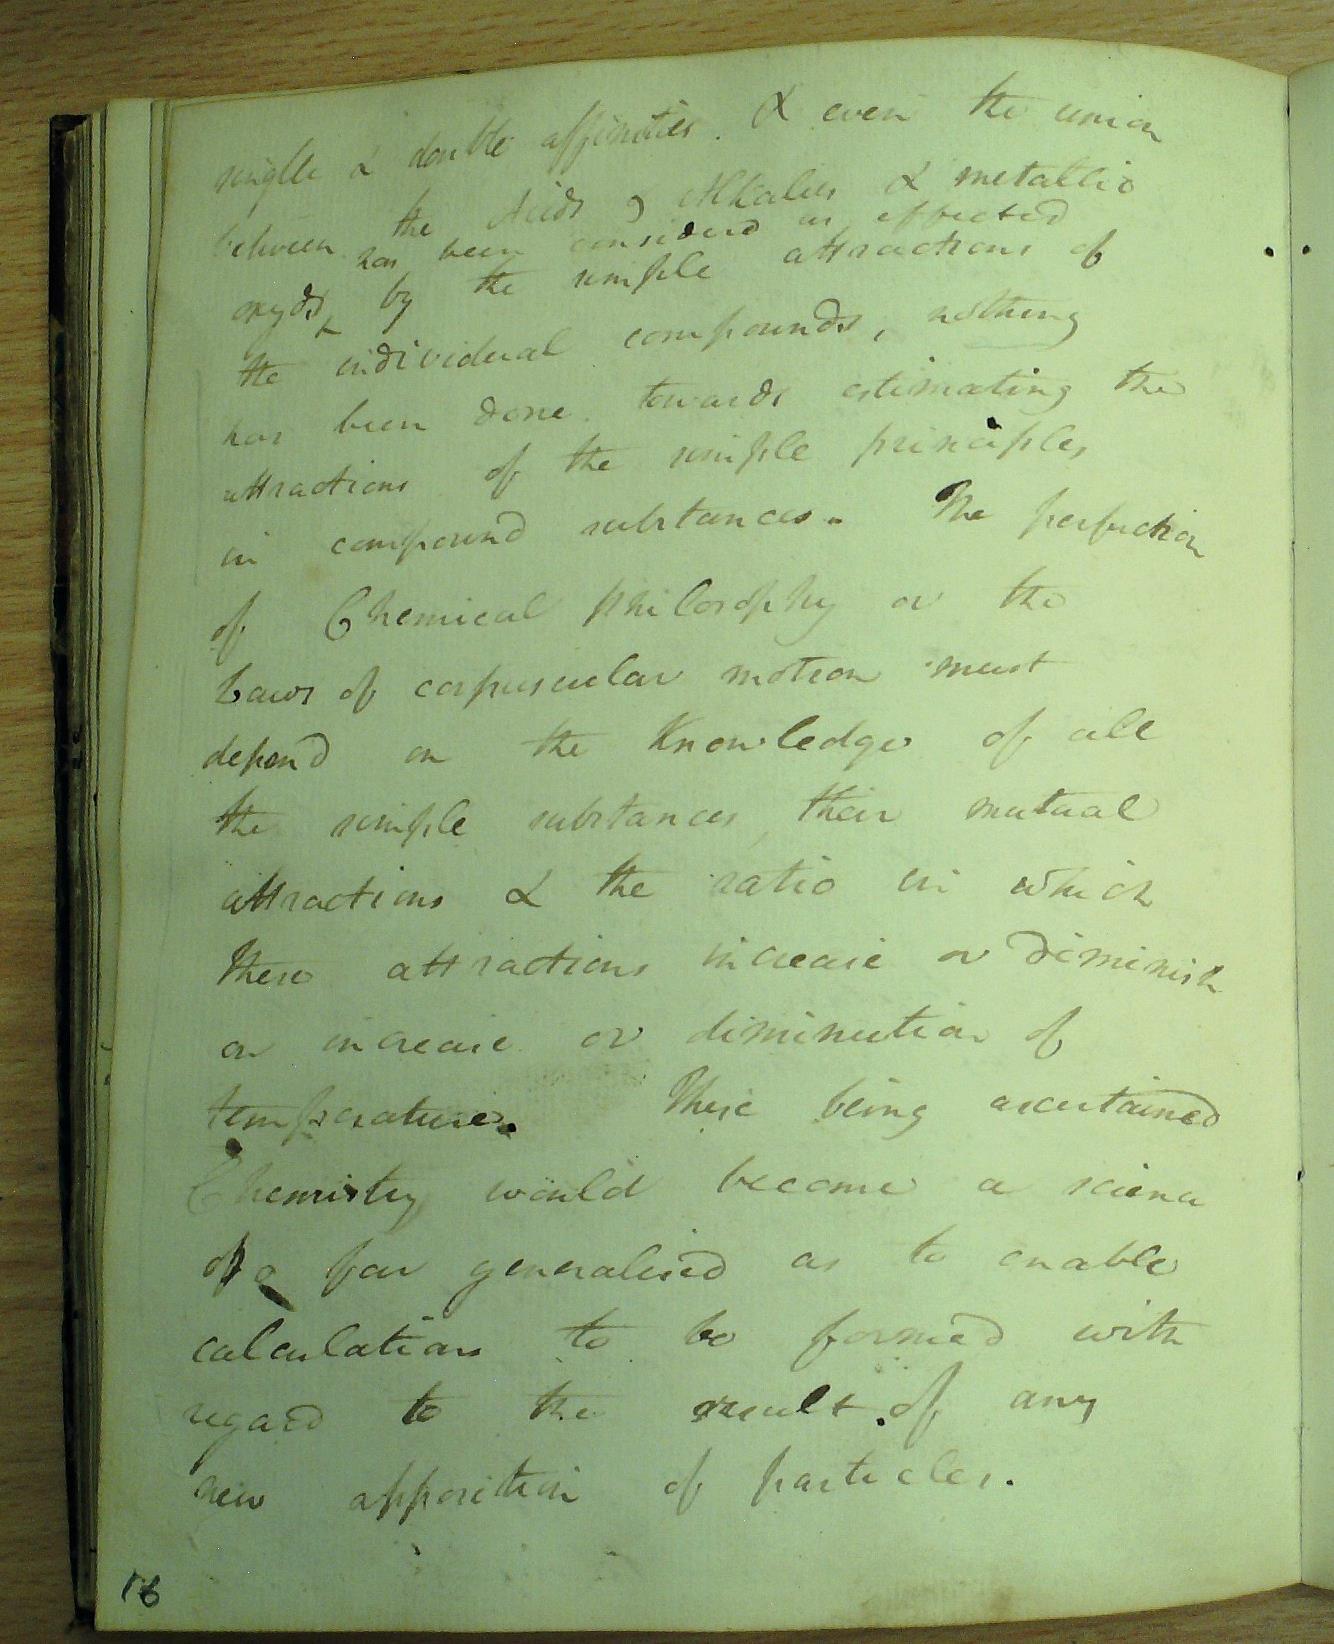 single & double affinities. & even the union
between the Acids & Alkalies & metallic
has been considered as effected
oxyds ‸ by the simple attractions of
the individual compounds, nothing
has been done towards estimating the
attractions of the simple principles
in compound substances. The perfection
of Chemical philosophy or the
Laws of corpuscular motion must
depend on the Knowledge of all
the simple substances, their mutual
attractions & the ratio in which
these attractions increase or diminish
on increase or diminution of
temperature. These being ascertained
Chemistry would become a science
so far generalised as to enable
calculations to be formed with
regard to the result of any
new apposition of particles.
16